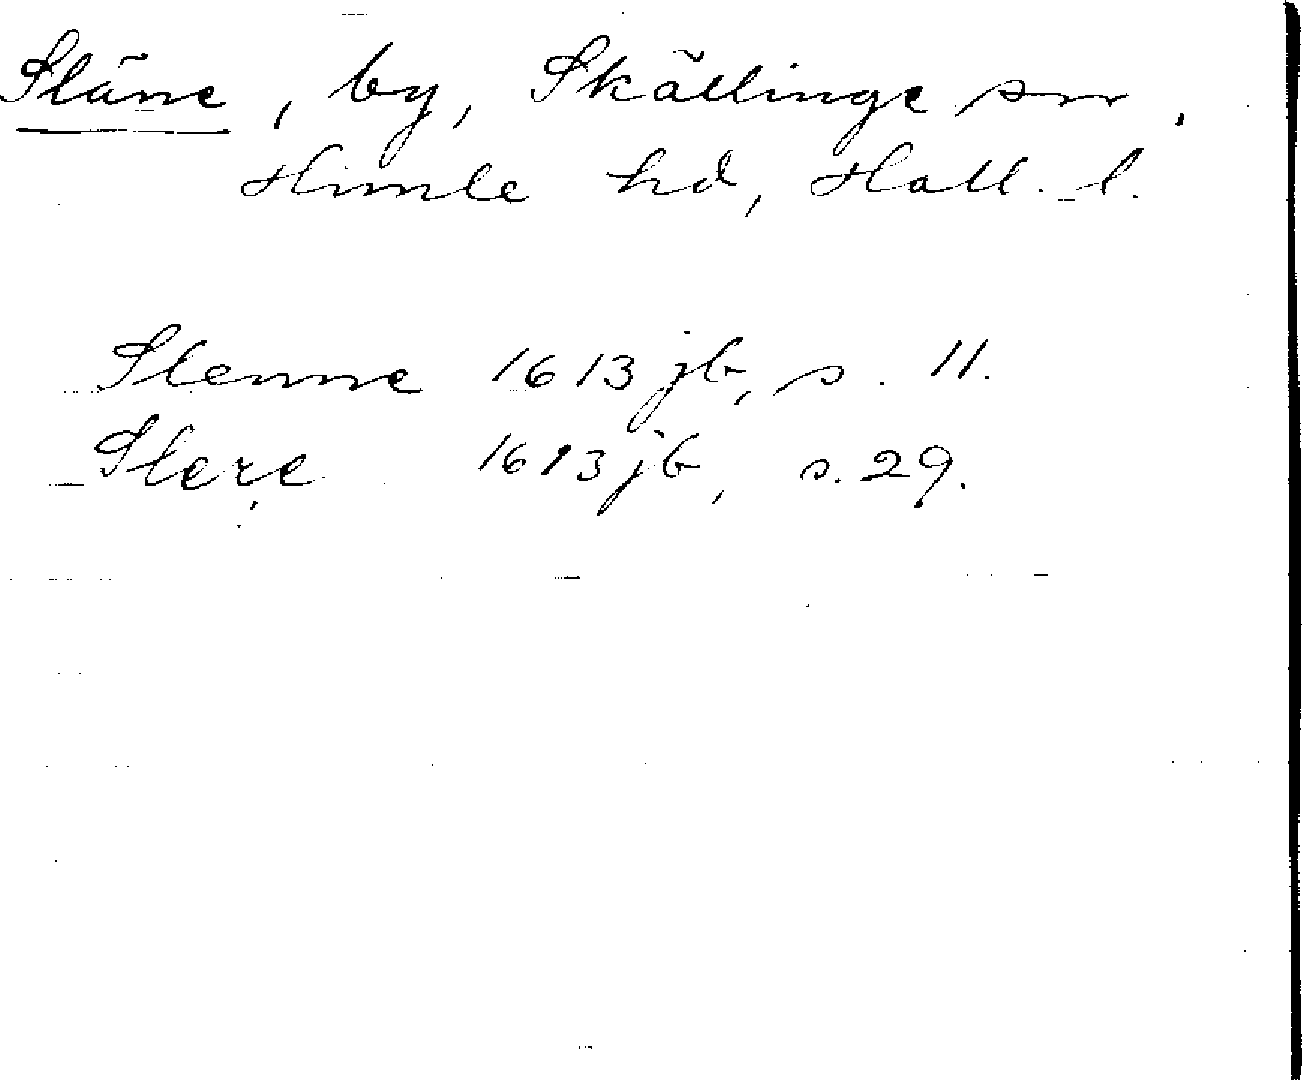 Släne, by, Skällinge sn,
Himle hd, Hall. l.
Slenne 1613 jb, s. 11.
Slere 1613 jb, s. 29.